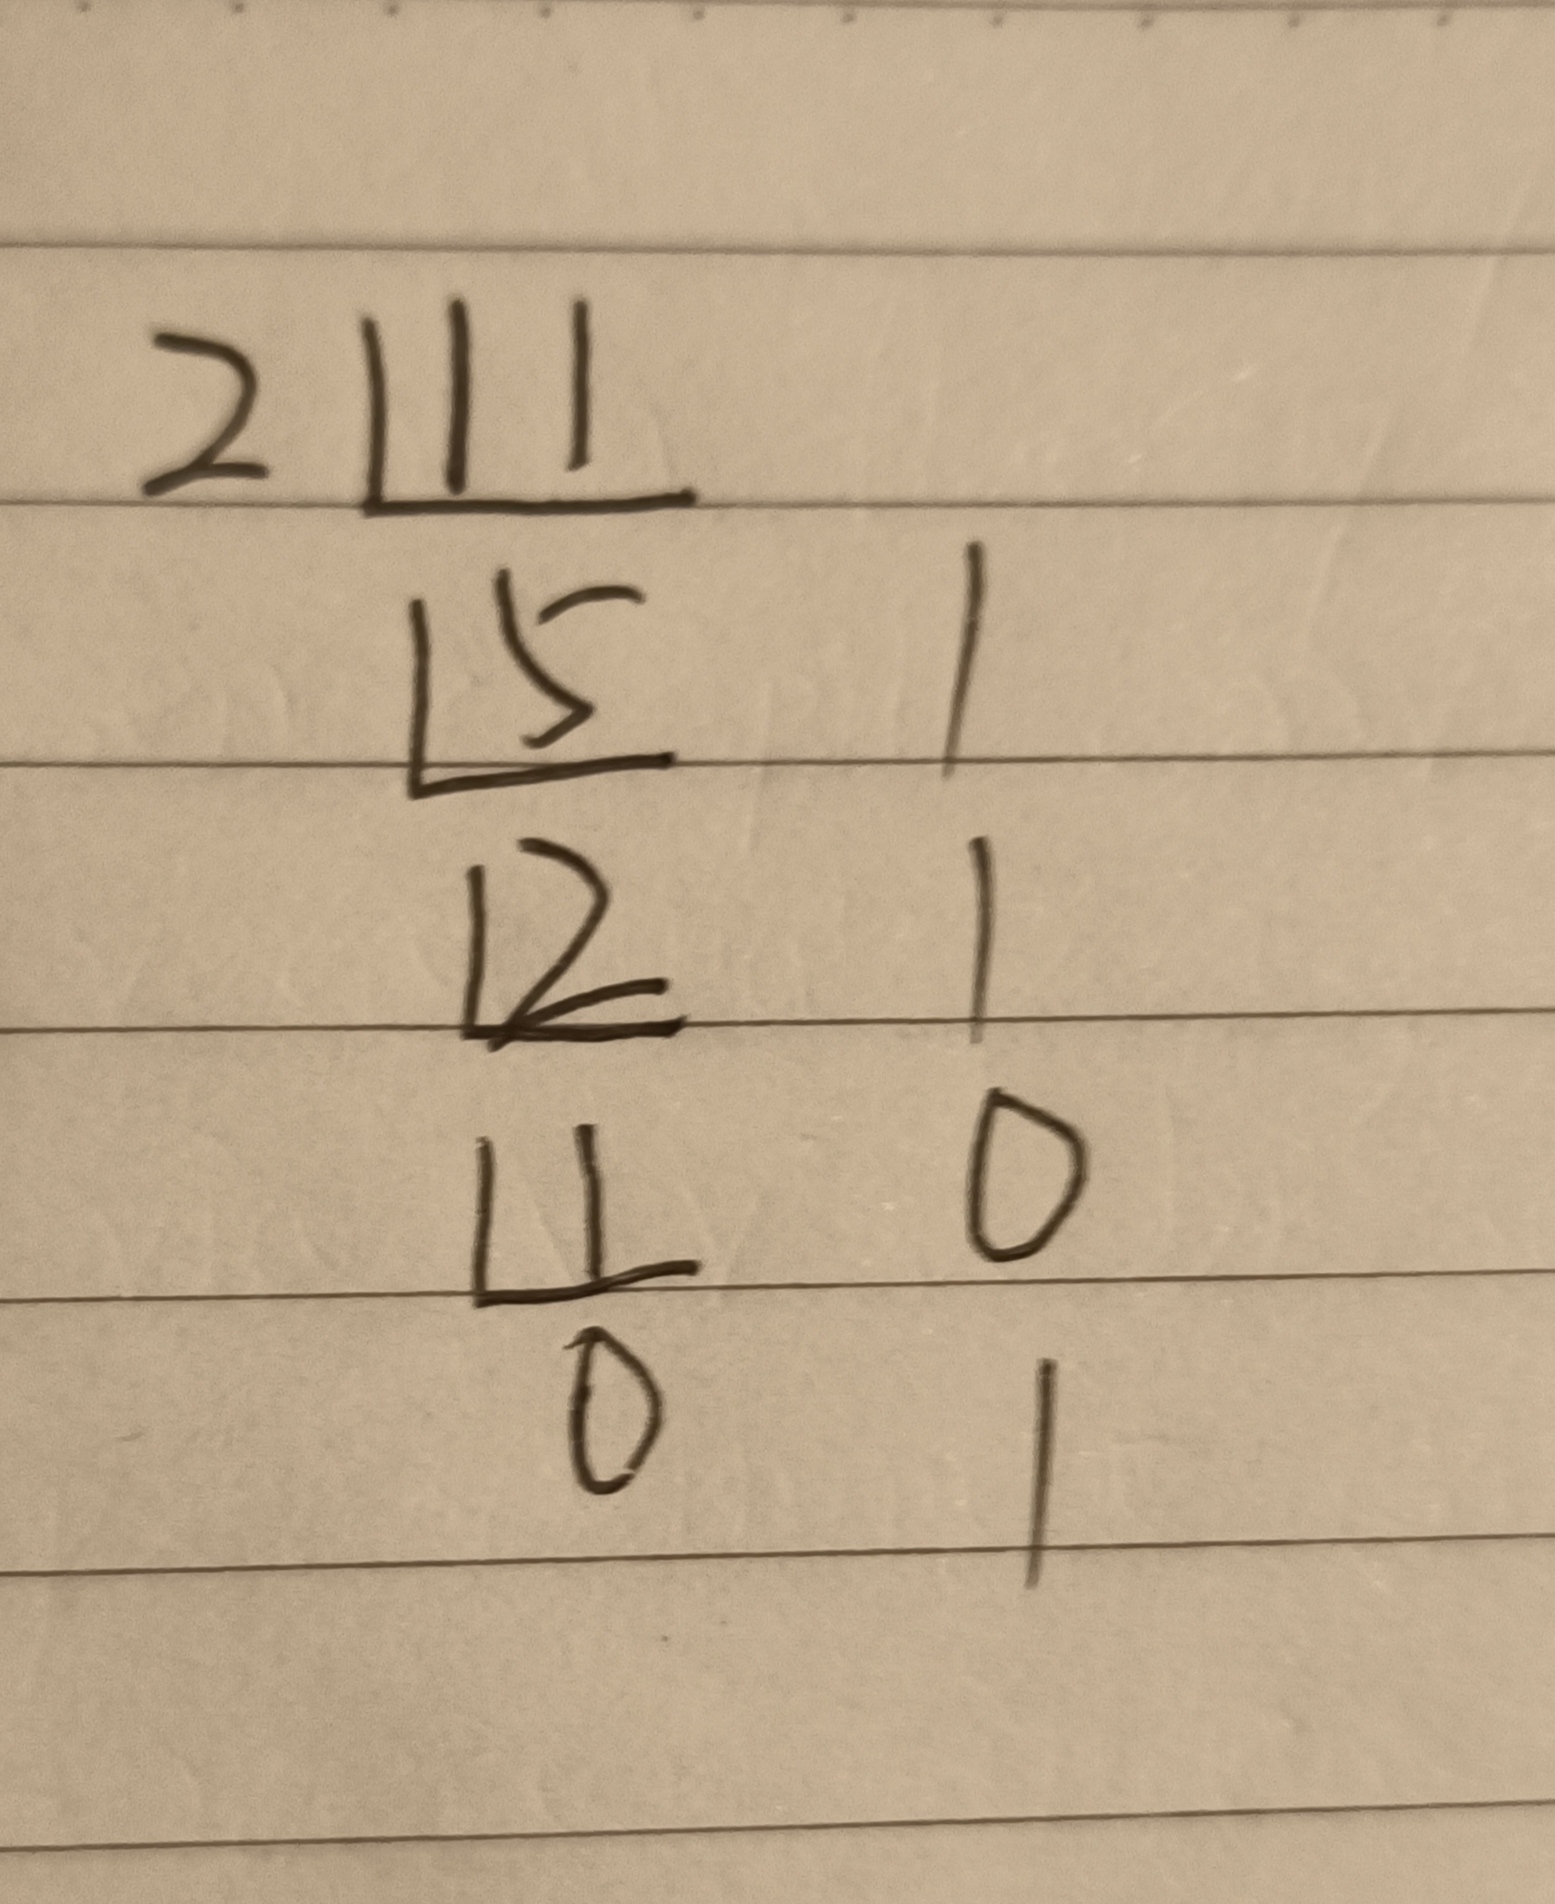 2 11
5 1
2 1
1 0
0 1